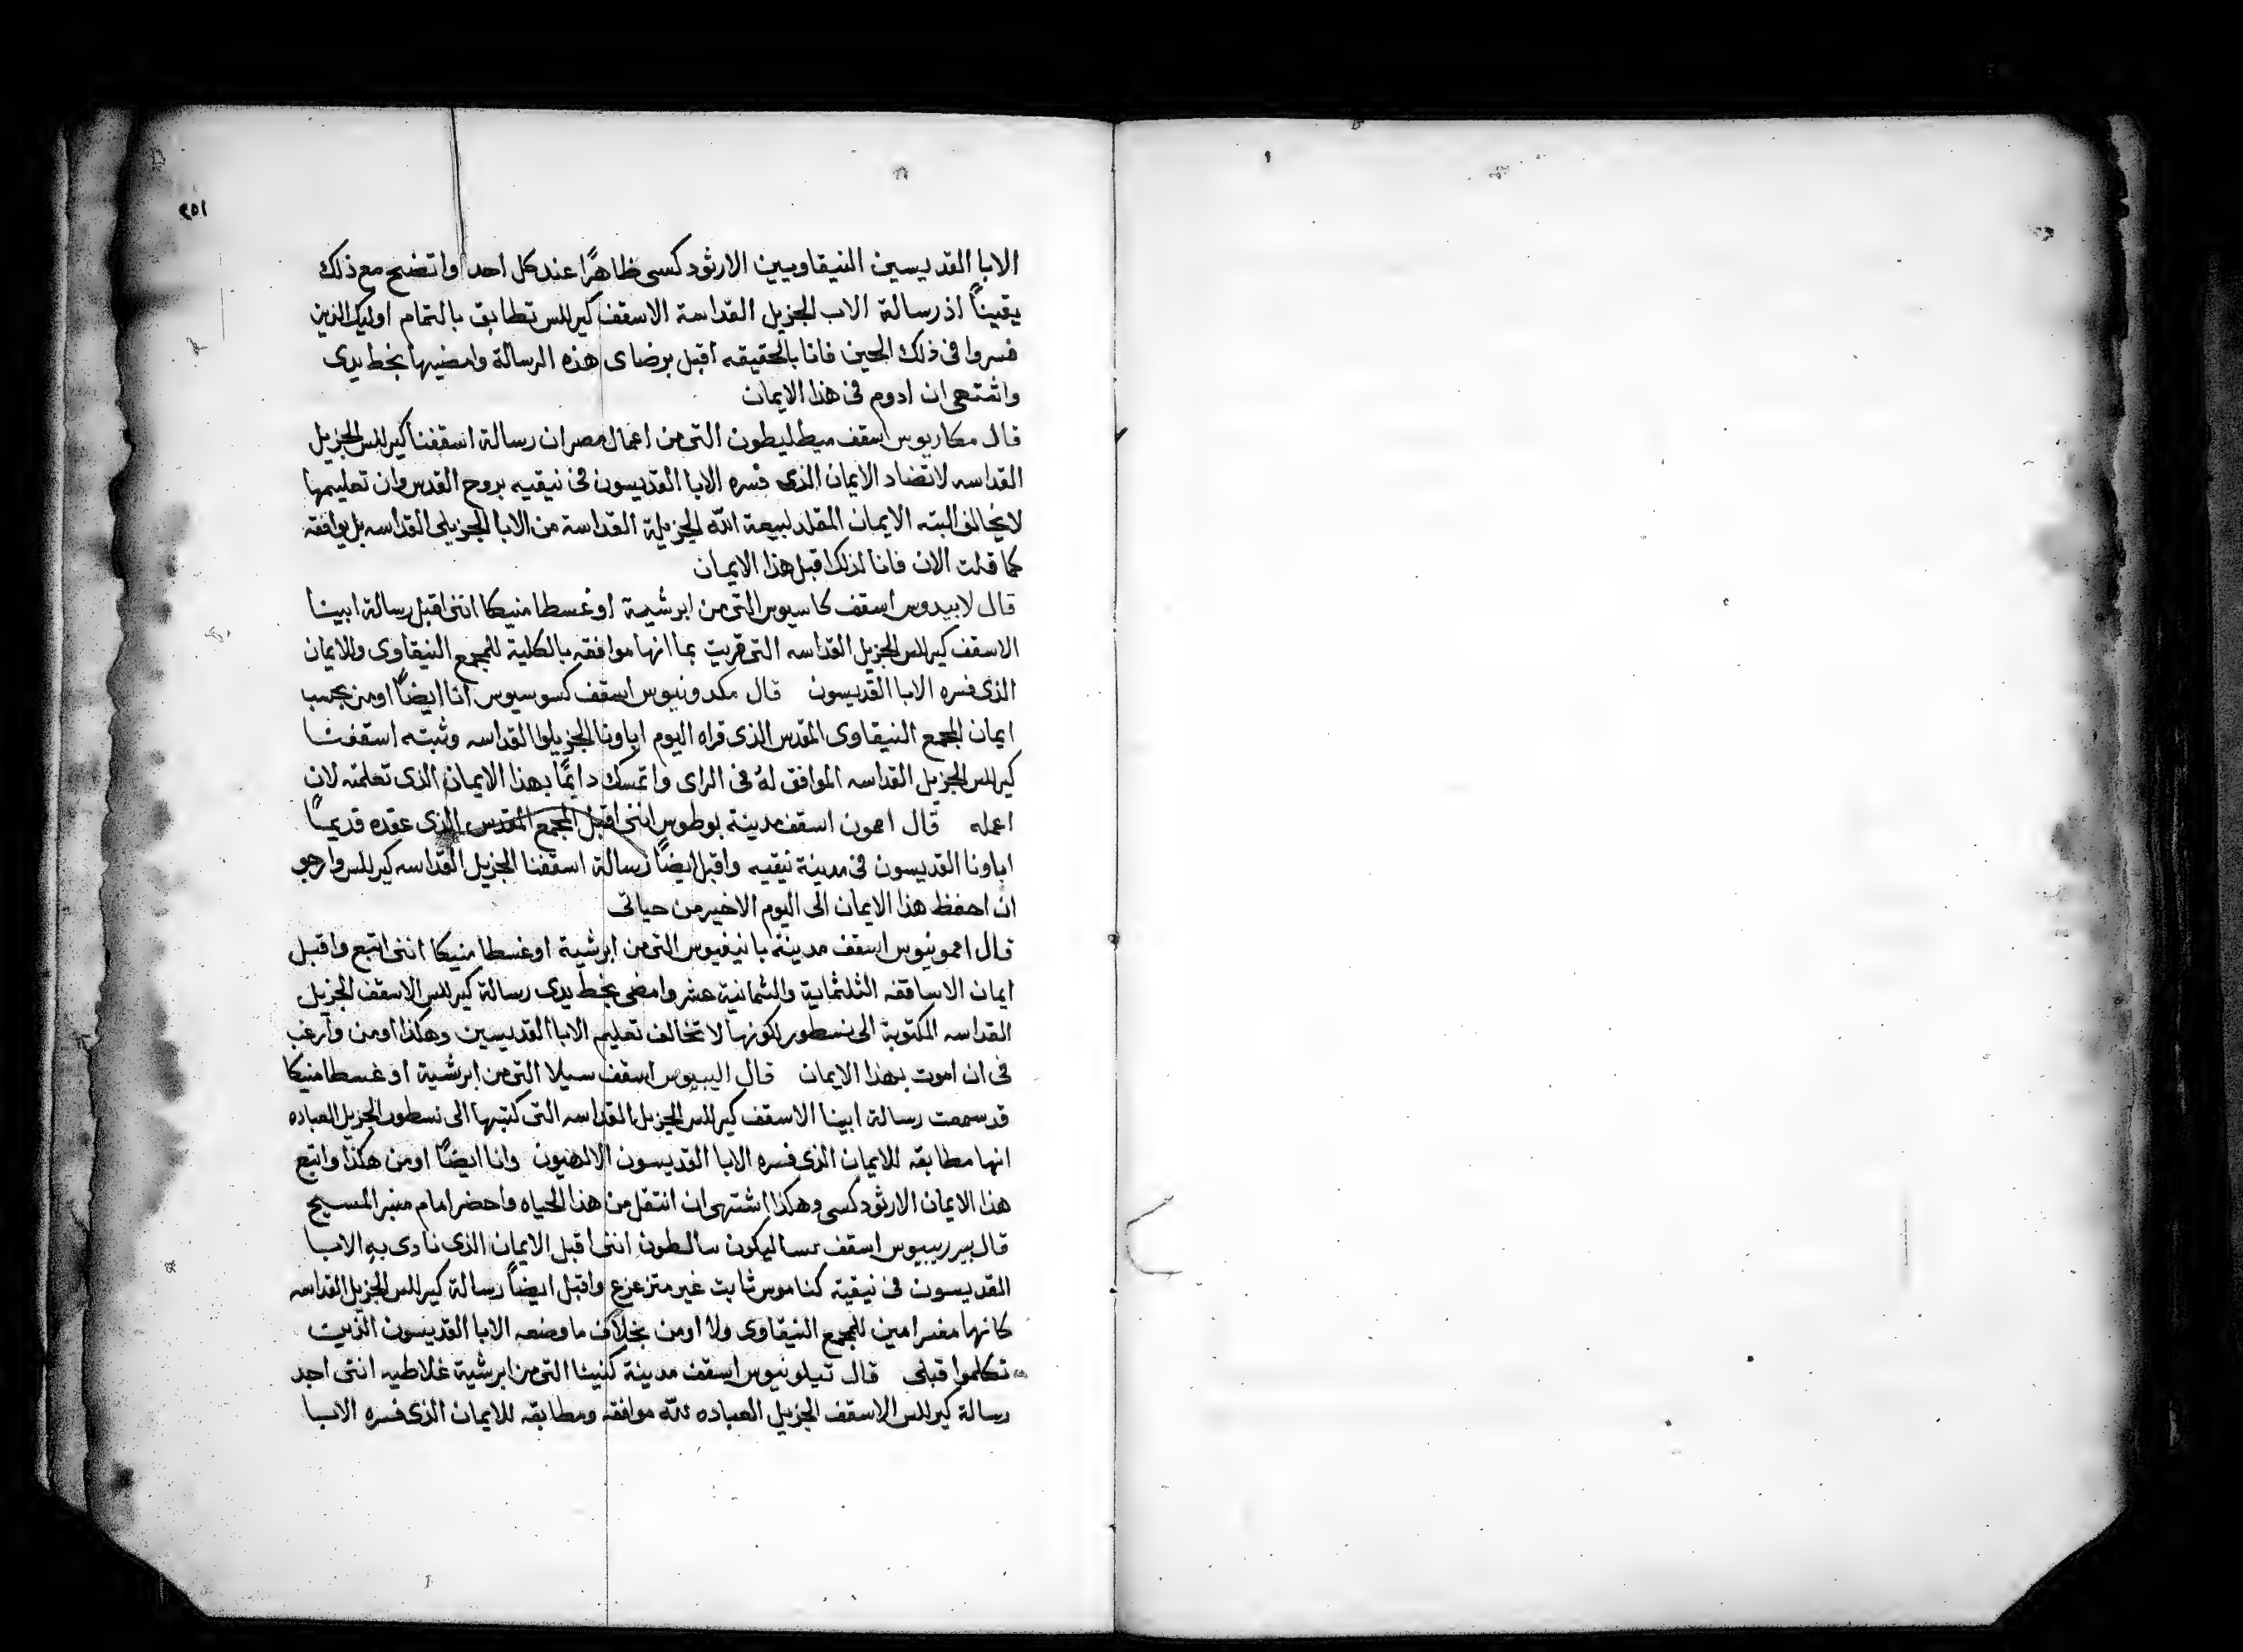 ٢٥١
الابا القديسين النيقاويين الارثودكسى ظاهرًا عند كل احد واتضح مع ذلك
يقينًا اذ رسالة الاب الجزيل القداسة الاسقف كيرللس تطابق بالتمام اوليك الذين
فسروا فى ذلك الحين فانا بالحقيقه اقبل برضاى هذه الرسالة وامضيها بخط يدى
واشتهى ان ادوم فى هذا الايمان
قال مكاريوس اسقف ميطليطون التى من اعمال مصر ان رسالة اسقفنا كيرللس الجزيل
القداسه لا تضاد الايمان الذى فسره الابا القديسون فى نيقيه بروح القدس وان تعليمها
لا يخالف البته الايمان المقلد لبيعة الله الجزيلة القداسة من الابا الجزيلى القداسه بل يوافقه
كما قلت الان فانا لذلك اقبل هذا الايمان
قال لابيدوس اسقف كاسيوس التى من ابرشية اوغسطامنيكا اننى اقبل رسالة ابينا
الاسقف كيرللس الجزيل القداسه التى قريت بما انها موافقه بالكلية للمجمع النيقاوى وللايمان
الذى فسره الابا القديسون قال مكدونيوس اسقف كسوسيوس انا ايضًا اومن بحسب
ايمان المجمع النيقاوى المقدس الذى قراه اليوم اباونا الجزيلوا القداسه وثبته اسقفنا
كيرللس الجزيل القداسه الموافق لهُ فى الراى واتمسك دايمًا بهذا الايمان الذى تعلمته لان
اعمله قال امون اسقف مدينة بوطوس اننى اقبل المجمع المقدس الذى عقده قديمًا
اباونا القديسون فى مدينة نيقيه واقبل ايضًا رسالة اسقفنا الجزيل القداسه كيرللس وارجو
ان احفظ هذا الايمان الى اليوم الاخير من حياتى
قال امونيوس اسقف مدينة بانيفيوس التى من ابرشية اوغسطامنيكا اننى اتبع واقبل
ايمان الاساقفه الثلثماية والثمانية عشر وامضى بخط يدى رسالة كيرللس الاسقف الجزيل
القداسه المكتوبة الى نسطور لكونها لا تخالف تعليم الابا القديسين وهكذا اومن وارغب
فى ان اموت بهذا الايمان قال اليبيوس اسقف سيلا التى من ابرشية اوغسطامنيكا
قد سمعت رسالة ابينا الاسقف كيرللس الجزيل القداسه التى كتبها الى نسطور الجزيل العباده
انها مطابقه للايمان الذى فسره الابا القديسون الالهيون وانا ايضًا اومن هكذا واتبع
هذا الايمان الارثودكسى وهكذا اشتهى ان انتقل من هذا الحياه واحضر امام منبر المسيح
قال بيرريبيوس اسقف سالطون اننى اقبل الايمان الذى نادى به الابا
القديسون فى نيقية كناموس ثابت غير متزعزع واقبل ايضًا رسالة كيرللس الجزيل القداسه
كانها مفسر امين للمجمع النيقاوى ولا اومن بخلاف ما وضعه الابا القديسون الذين
تكلموا قبلى قال تيلونيوس اسقف مدينة كنينا التى من ابرشية غلاطيه اننى اجد
رسالة كيرللس الاسقف الجزيل العباده لله موافقه ومطابقه للايمان الذى فسره الابا